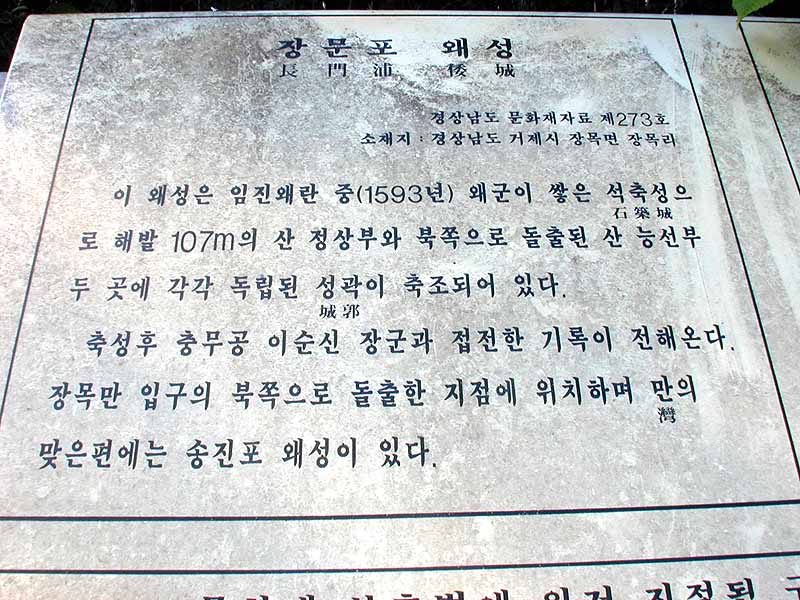 장문포 왜성
長門浦 倭城
경상남도 문화재자료 제273호
소재지 : 경상남도 거제시 장목면 장목리
이 왜성은 임진왜란 중(1593년) 왜군이 쌓은 석축성으
石築城
로 해발 107m의 산 정상부와 북쪽으로 돌출된 산 능선부
두 곳에 각각 독립된 성곽이 축조되어 있다.
城郭
축성후 충무공 이순신 장군과 접전한 기록이 전해온다.
장목만 입구의 북쪽으로 돌출한 지점에 위치하며 만의
灣
맞은편에는 송진포 왜성이 있다.
의거 지정된